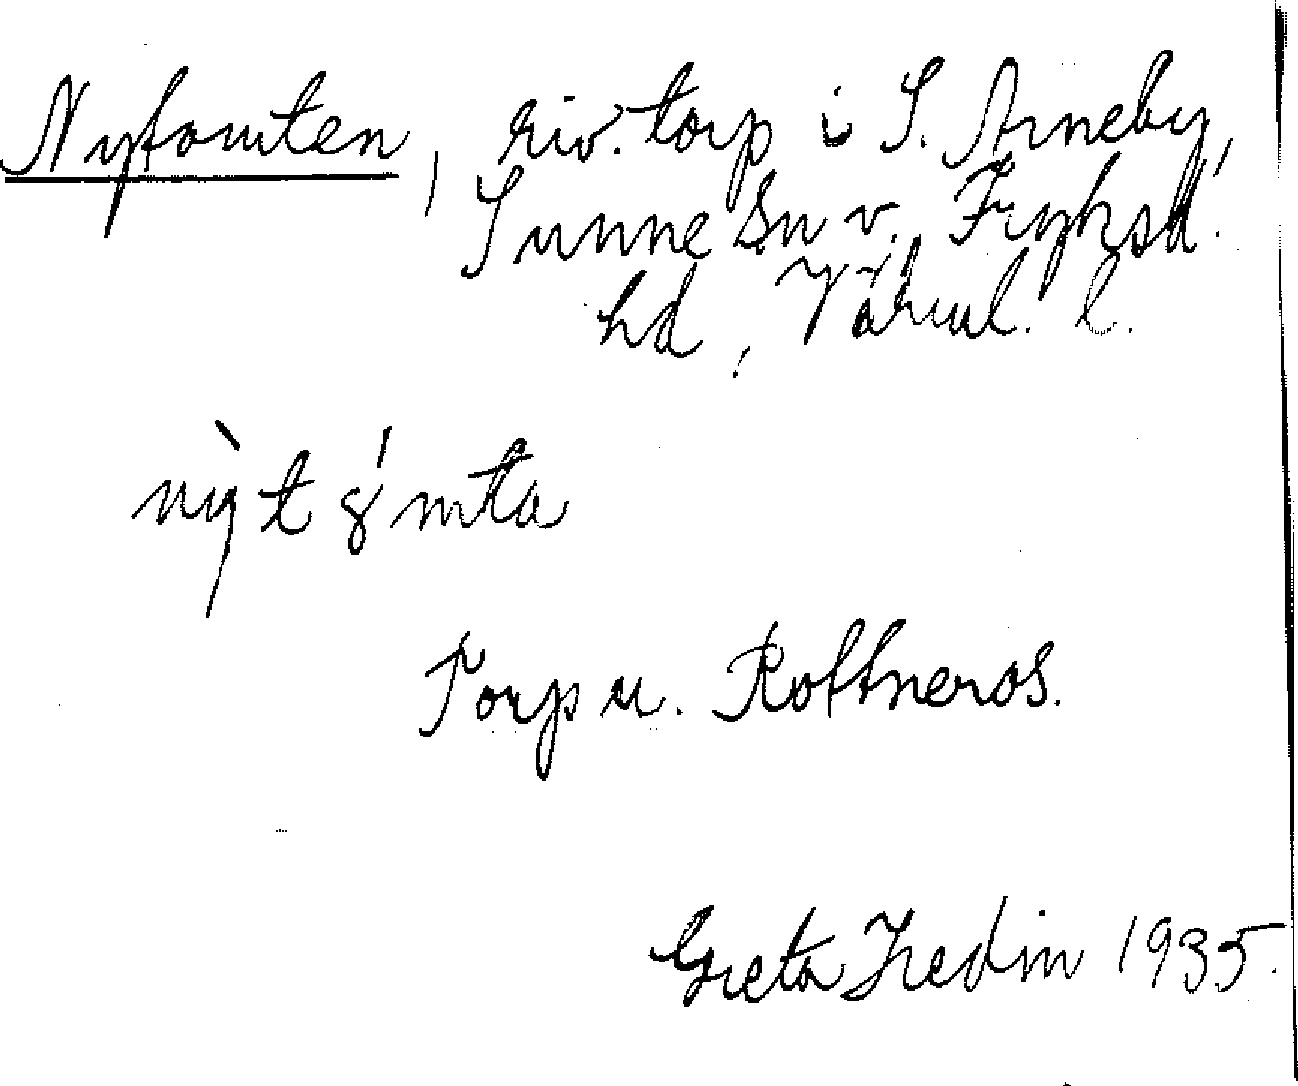 Nytomten, riv. torp i S. Arneby,
Sunne sn v. Fryksd.
hd, Värml. l.
nỳtȣ́mta
Torp u. Rottneros.
Greta Hedin 1935.